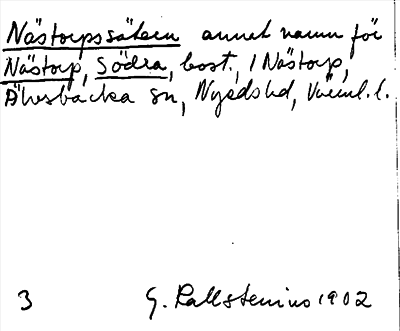 Nästorpssätern annat namn för
Nästorp, Södra, bost., i Nästorp,
Älvsbacka sn, Nyeds hd, Värml. l.
3 G. Kallstenius 1902